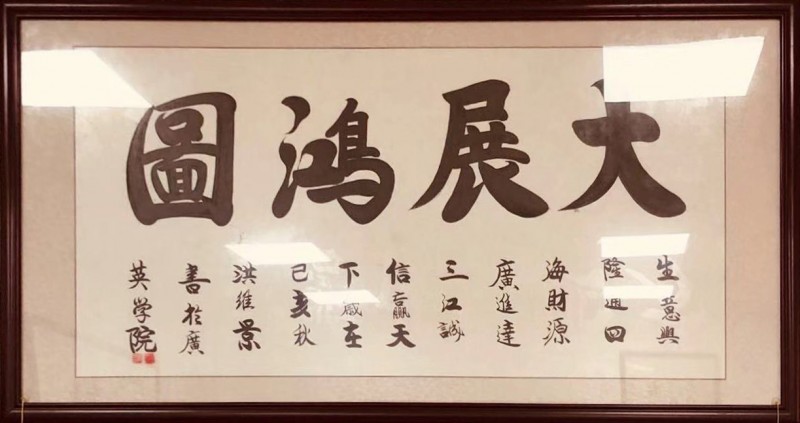 大展鴻圖
生意興
隆通四
海財源
廣進達
三江誠
信贏天
下歲在
己亥秋
洪維景
書於廣
英学院